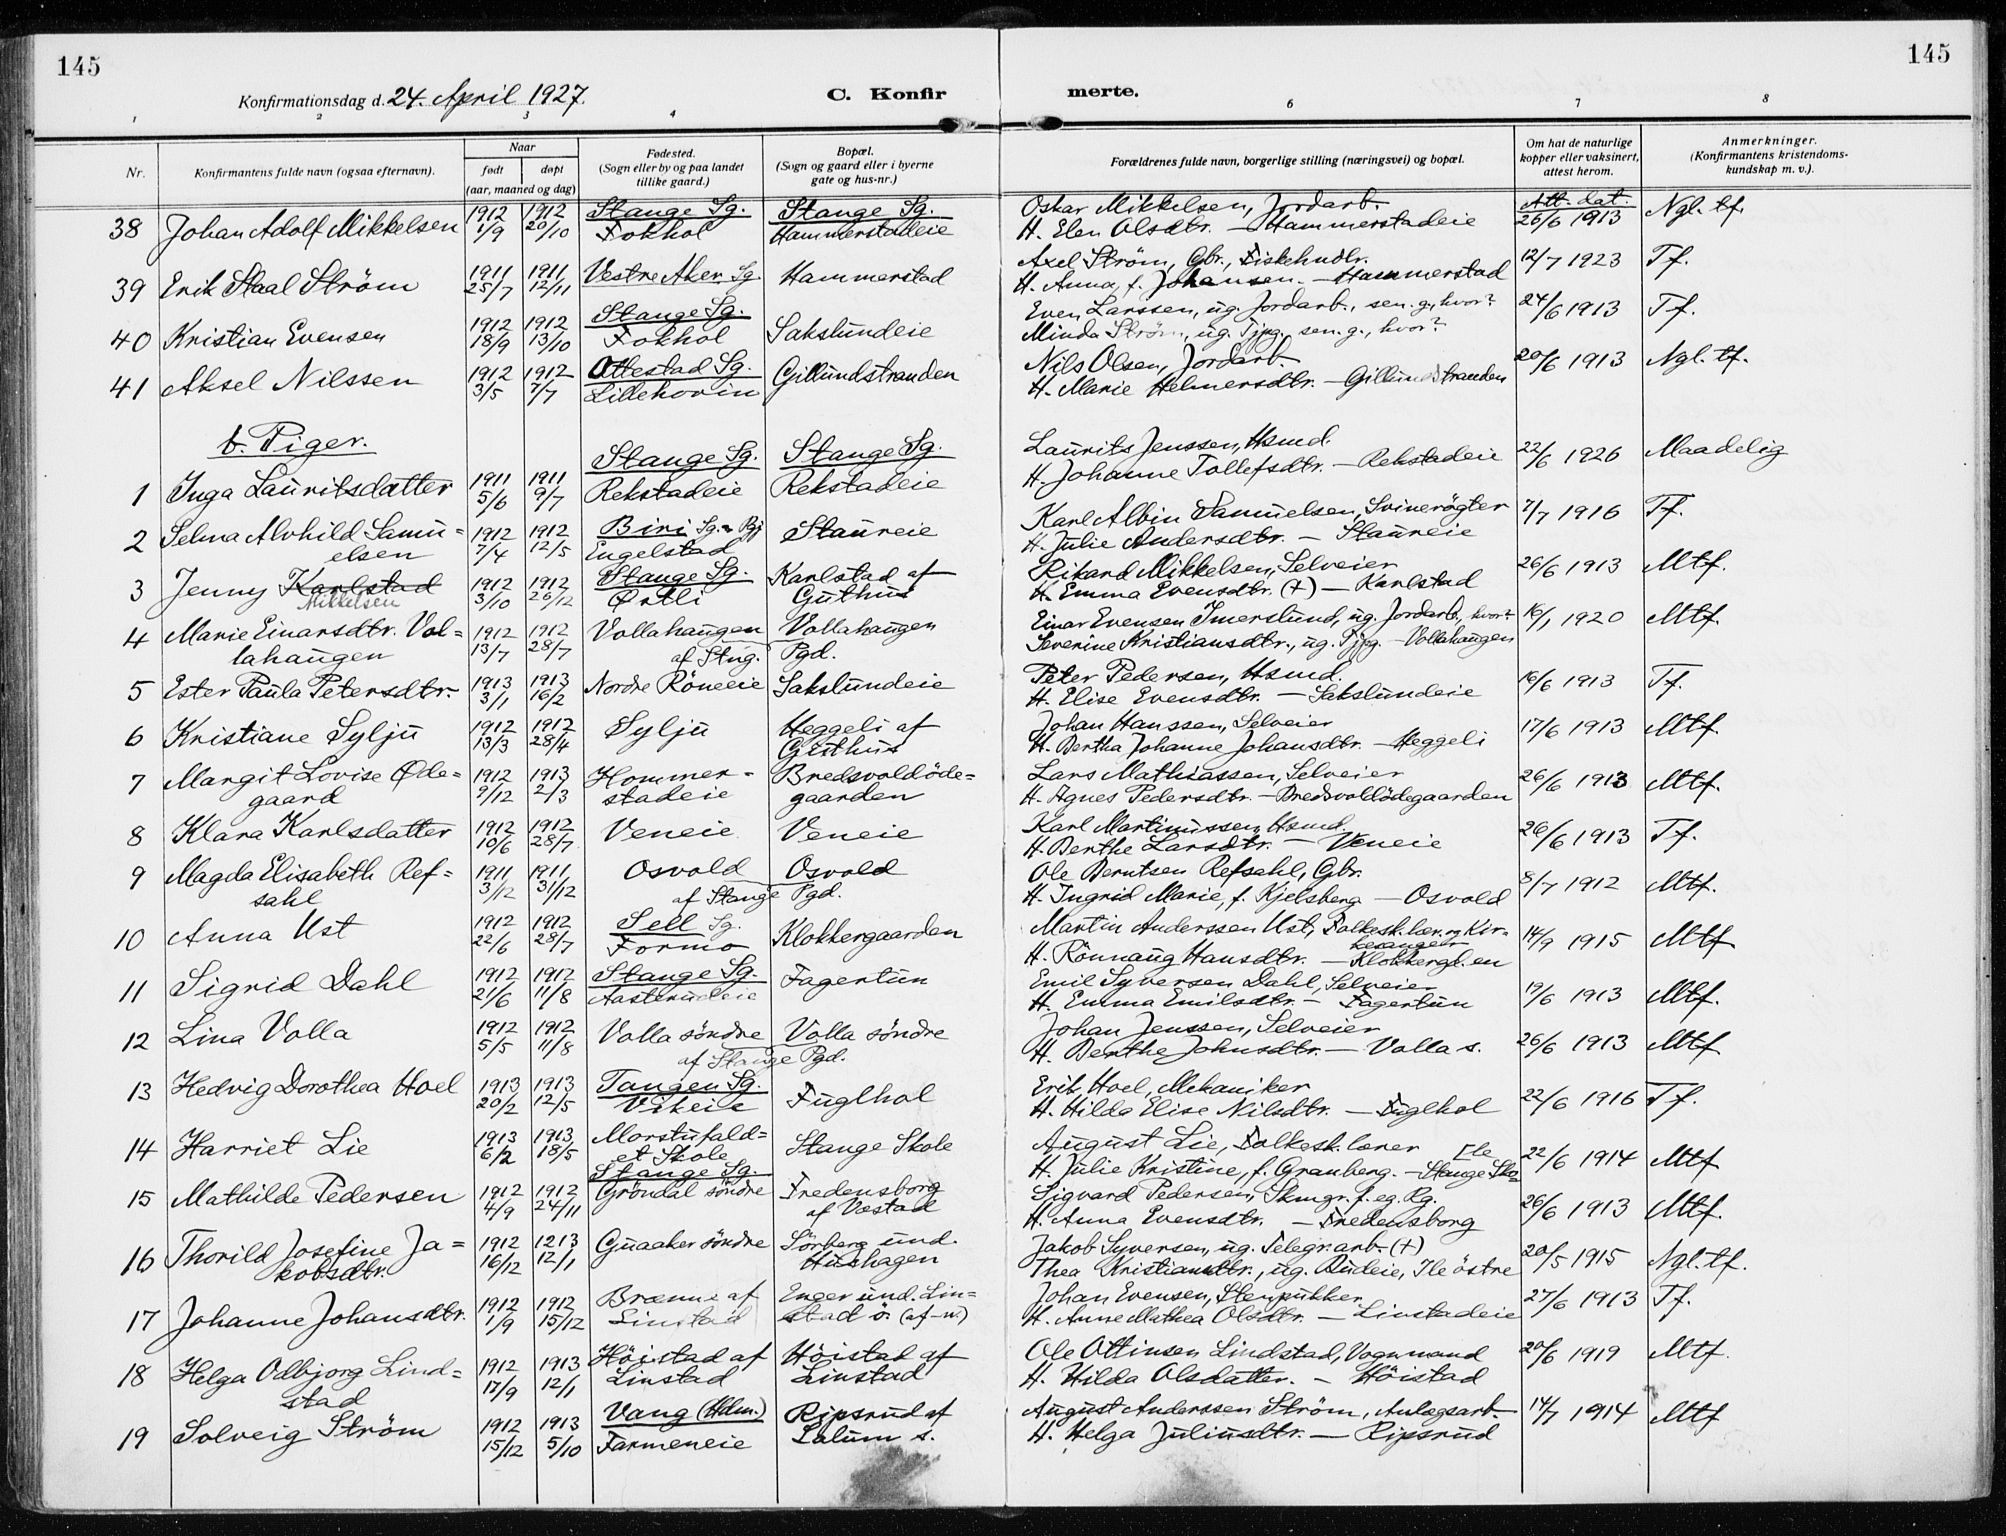 145
145
Konfirmationsdag d. 24. April 1927.
C. Konfir
merte.
1 2 3 4 6 7 8
Nr.
Konfirmantens fulde navn (ogsaa efternavn).
Naar
født
døpt
(aar, maaned og dag)
Fødested.
(Sogn eller by og paa landet
tillike gaard.)
Bopæl.
(Sogn og gaard eller i byerne
gate og hus-nr.)
Forældrenes fulde navn, borgerlige stilling (næringsvei) og bopæl.
Om hat de naturlige
kopper eller vaksinert,
attest herom.
Anmerkninger.
(Konfirmantens kristendoms-
kundskap m. v.).
38 Johan Adolf Mikkelsen 1912 1/9 1912 20/10 Stange Sg. Fokhol Stange Sg. Hammerstadeie Oskar Mikkelsen, Jordarb. Att. dat. 26/6 1913 Ngl. tf.
H. Elen Olsdtr. — Hammerstadeie
39 Erik Staal Ström 1911 25/7 1911 12/11 Vestre Aker Sg. Hammerstad Axel Ström, Gbr., Fiskehndlr. 12/7 1923 Tf.
H. Anna, f. Johansen. — Hammerstad
40 Kristian Evensen 1912 18/9 1912 13/10 Stange Sg. Fokhol Sakslundeie Even Larssen, ug. Jordarb., sen. g., hvor? 24/6 1913 Tf.
Minda Ström, ug. Tjpg., sen. g., hvor?
41 Aksel Nilssen 1912 3/5 1912 7/7 Ottestad Sg. Lillehovin Gillundstranden Nils Olsen, Jordarb. 20/6 1913 Ngl. tf.
H. Marie Helmersdtr. — Gillundstranden
b. Piger.
1 Inga Lauritsdatter 1911 5/6 1911 9/7 Stange Sg. Rekstadeie Stange Sg. Rekstadeie Laurits Jenssen, Hsmd. 22/6 1926 Maadelig
H. Johanne Tollefsdtr. — Rekstadeie
2 Selma Alvhild Samu= 1912 7/4 1912 12/5 Biri Sg. Engelstad Staureie Karl Albin Samuelsen, Svinerögter 7/7 1916 Tf.
elsen H. Julie Andersdtr. — Staureie
3 Jenny Karlstad 1912 3/10 1912 26/12 Stange Sg. Ørtli Karlstad af Guthus Rikard Mikkelsen, Selveier 26/6 1913 Mtf.
Mikkelsen H. Emma Evensdtr. (+) — Karlstad
4 Marie Einarsdtr. Vol= 1912 13/7 1912 28/7 Vollahaugen Vollahaugen Einar Evensen Imerslund, ug. Jordarb., hvor? 16/1 1920 Mtf.
lahaugen af Stng. Pgd. Severine Kristiansdtr., ug. Tjpg. — Vollahaugen
5 Ester Paula Petersdtr. 1913 3/1 1913 16/2 Nordre Röneeie Sakslundeie Peter Pedersen, Hsmd. 16/6 1913 Tf.
H. Elise Evensdtr. — Sakslundeie
6 Kristiane Sylju 1912 13/3 1912 28/4 Sylju Heggeli af Guthus Johan Hanssen, Selveier 17/6 1913 Mtf.
H. Bertha Johanne Johansdtr. — Heggeli
7 Margit Lovise Øde= 1912 9/12 1913 2/3 Hommer= stadeie Bredsvoldöde= gaarden Lars Mathiassen, Selveier 26/6 1913 Mtf.
gaard H. Agnes Pedersdtr. — Bredsvoldödegaarden
8 Klara Karlsdatter 1912 10/6 1912 28/7 Veneie Veneie Karl Martinussen, Hsmd. 26/6 1913 Tf.
H. Berthe Larsdtr. — Veneie
9 Magda Elisabeth Ref= 1911 3/12 1911 31/12 Osvold Osvold Ole Berntsen Refsahl, Gbr. 8/7 1912 Mtf.
sahl af Stange Pgd. H. Ingrid Marie, f. Kjelsberg — Osvold
10 Anna Ust 1912 22/6 1912 28/7 Sell Sg. Formo Klokkergaarden Martin Anderssen Ust, Folkesk.lær. og Kir= 14/9 1915 Mtf
kesanger
H. Rönnaug Hansdtr. — Klokkergd.en
11 Sigrid Dahl 1912 21/6 1912 11/8 Stange Sg. Aasterudeie Fagertun Emil Syversen Dahl, Selveier 19/6 1913 Mtf.
H. Emma Emilsdtr. — Fagertun
12 Lina Volla 1912 5/5 1912 11/8 Volla söndre Volla söndre Johan Jenssen, Selveier 26/6 1913 Mtf
af Stange Pgd. H. Berthe Johnsdtr. — Volla s.
13 Hedvig Dorothea Hoel 1913 20/2 1913 12/5 Tangen Sg. Vikeie Fuglhol Erik Hoel, Mekaniker 22/6 1916 Tf.
H. Hilda Elise Nilsdtr. — Fuglhol
14 Harriet Lie 1913 6/2 1913 18/5 Morstufald= et Skole Stange Skole August Lie, Folkesk.lærer 22/6 1914 Mtf
H. Julie Kristine, f. Granberg. — Stange Sko= le
15 Mathilde Pedersen 1912 4/9 1912 24/11 Stange Sg. Gröndal söndre Fredensborg af Væstad Sigvard Pedersen, Skmgr. f. eg. Rg. 26/6 1913 Mtf.
H. Anna Evensdtr. — Fredensborg
16 Thorild Josefine Ja= 1912 16/12 1213 12/1 Guaaker söndre Sörberg und. Hushagen Jakob Syversen, ug. Telegr.arb. (+) 20/5 1915 Ngl. tf.
kobsdtr. Thea Kristiansdtr., ug. Budeie, Ile östre
17 Johanne Johansdtr. 1912 1/9 1912 15/12 Brænne af Linstad Enger und. Lin= stad ö. Johan Evensen, Stenpukker 27/6 1913 Tf.
H. Anne Mathea Olsdtr. — Linstadeie
18 Helga Odbjorg Lind= 1912 17/9 1913 12/1 Höistad af Linstad Höistad af Linstad Ole Ottinsen Lindstad, Vognmand 20/6 1919 Mtf.
stad H. Hilda Olsdatter. — Höistad
19 Solveig Ström 1912 15/12 1913 5/10 Vang (Hdm.) Farmeneie Ripsrud af Lalum s. August Anderssen Ström, Anlægsarb. 14/7 1914 Mtf
H. Helga Juliusdtr. — Ripsrud